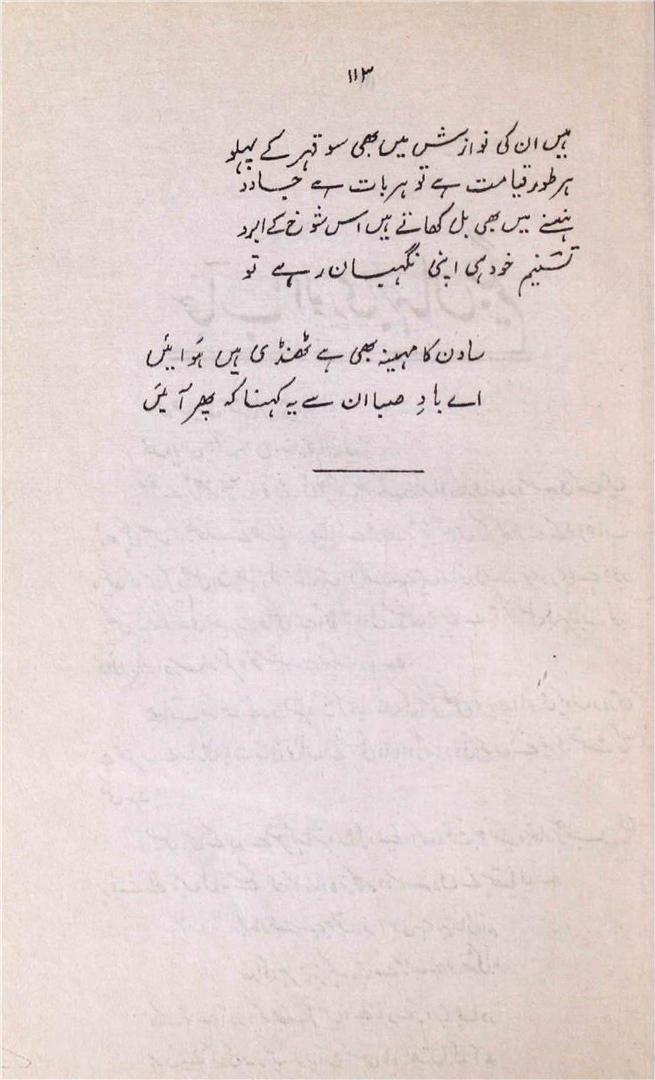 ۱۱۳
ہیں ان کی نوازش میں بھی سو قہر کے پہلو
ہر طور قیامت ہے تو ہر بات ہے جادو
ہنسنے میں بھی بل کھاتے ہیں اس شوخ کے ابرو
تسنیم خود ہی اپنی نگہبان رہے تو
ساون کا مہینہ بھی ہے ٹھنڈی ہیں ہوائیں
اے بادِ صبا ان سے یہ کہنا کہ پھر آئیں